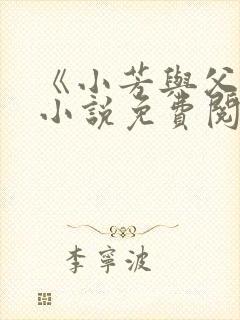 《小芳與父
小說免費閱
李寧波